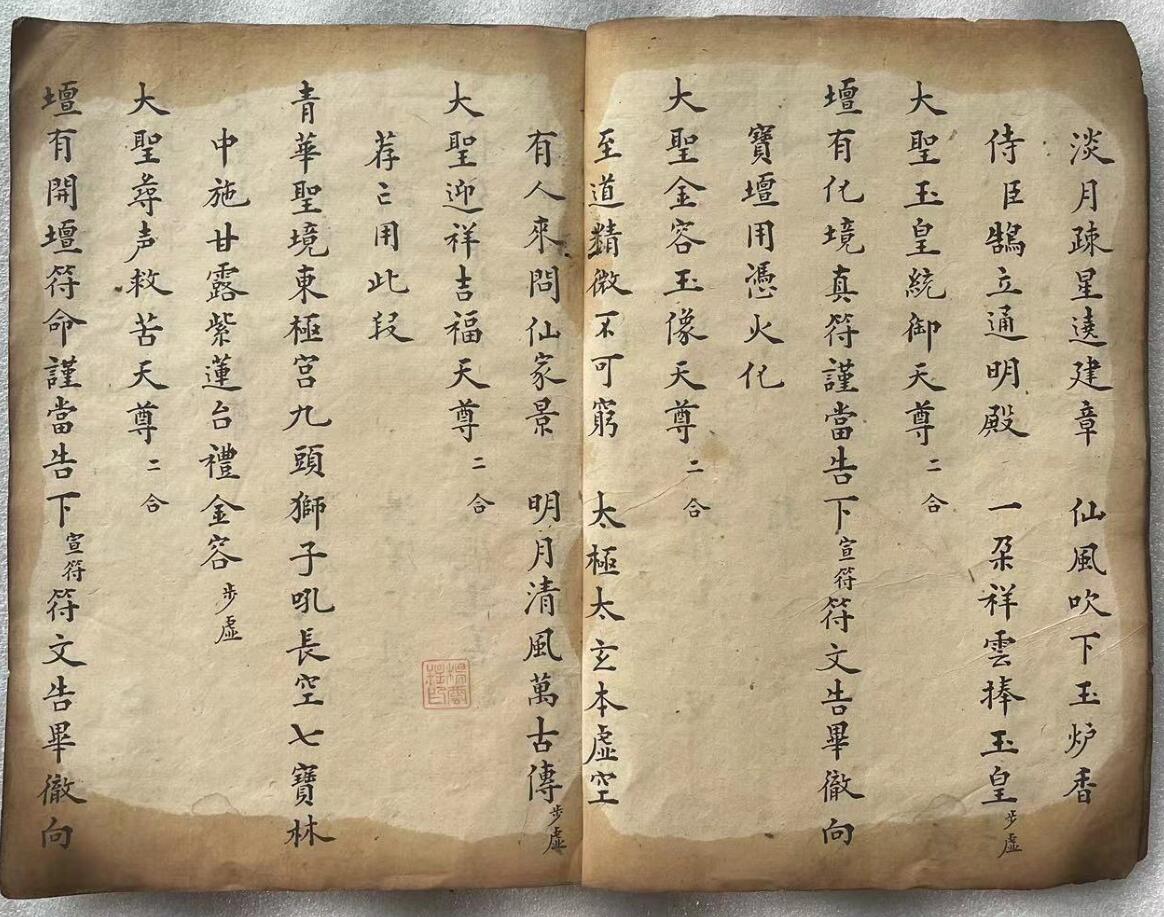 淡月疎星遶建章 仙風吹下玉炉香
侍臣鵠立通明殿 一朶祥雲捧玉皇步虛
大聖玉皇統御天尊二合
壇有化境真符謹當告下宣符符文告畢徹向
寶壇用憑火化
大聖金容玉像天尊二合
至道精微不可窮 太極太玄本虛空
有人來問仙家景 明月清風萬古傳步虛
大聖迎祥吉福天尊二合
荐亡用此段
青華聖境東極宮九頭獅子吼長空七寶林
中施甘露紫蓮台禮金容步虛
大聖尋声救苦天尊二合
壇有開壇符命謹當告下宣符符文告畢徹向